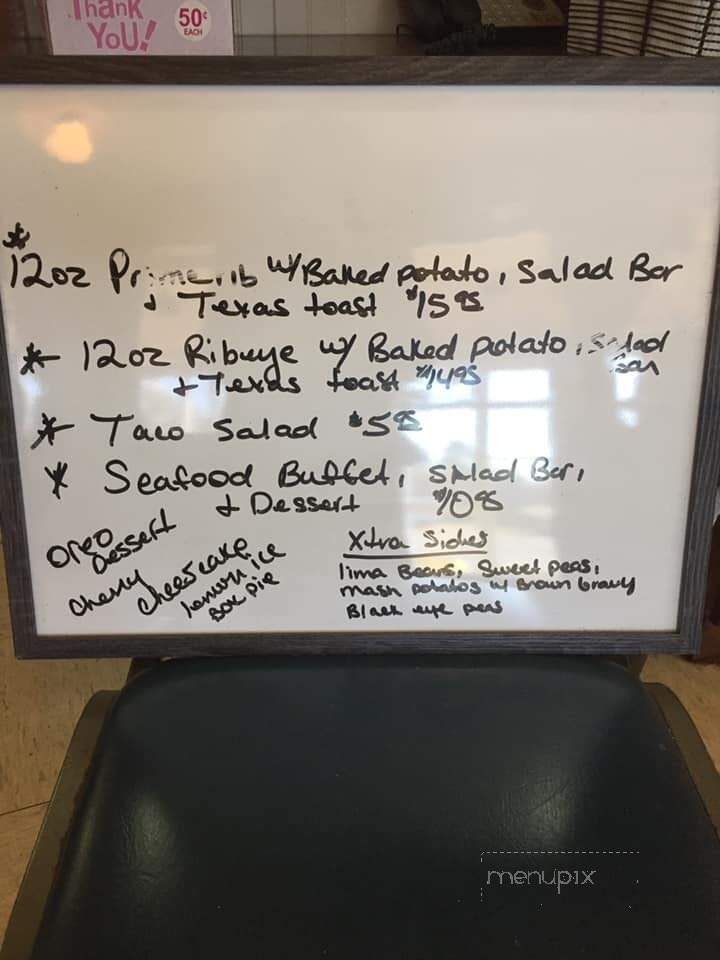 Thank
YOU!
50¢
EACH
*
12oz Prime rib w/ Baked potato, Salad Bar
+ Texas toast $15 95
* 12oz Ribuye w/ Baked potato, Salad Bar
+ Texas toast $14 95
* Taco Salad $5 95
* Seafood Buffet, Salad Bar,
+ Dessert $10 95
Oreo
Dessert
Cherry
Cheescake
lemon ice
Box pie
Xtra Sides
lima Beans, Sweet peas,
mash potatos w/ Brown Gravy
Black eye peas
menupix